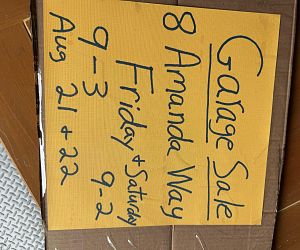 Garage Sale
8 Amanda Way
Friday + Saturday
9-3 9-2
Aug 21 + 22